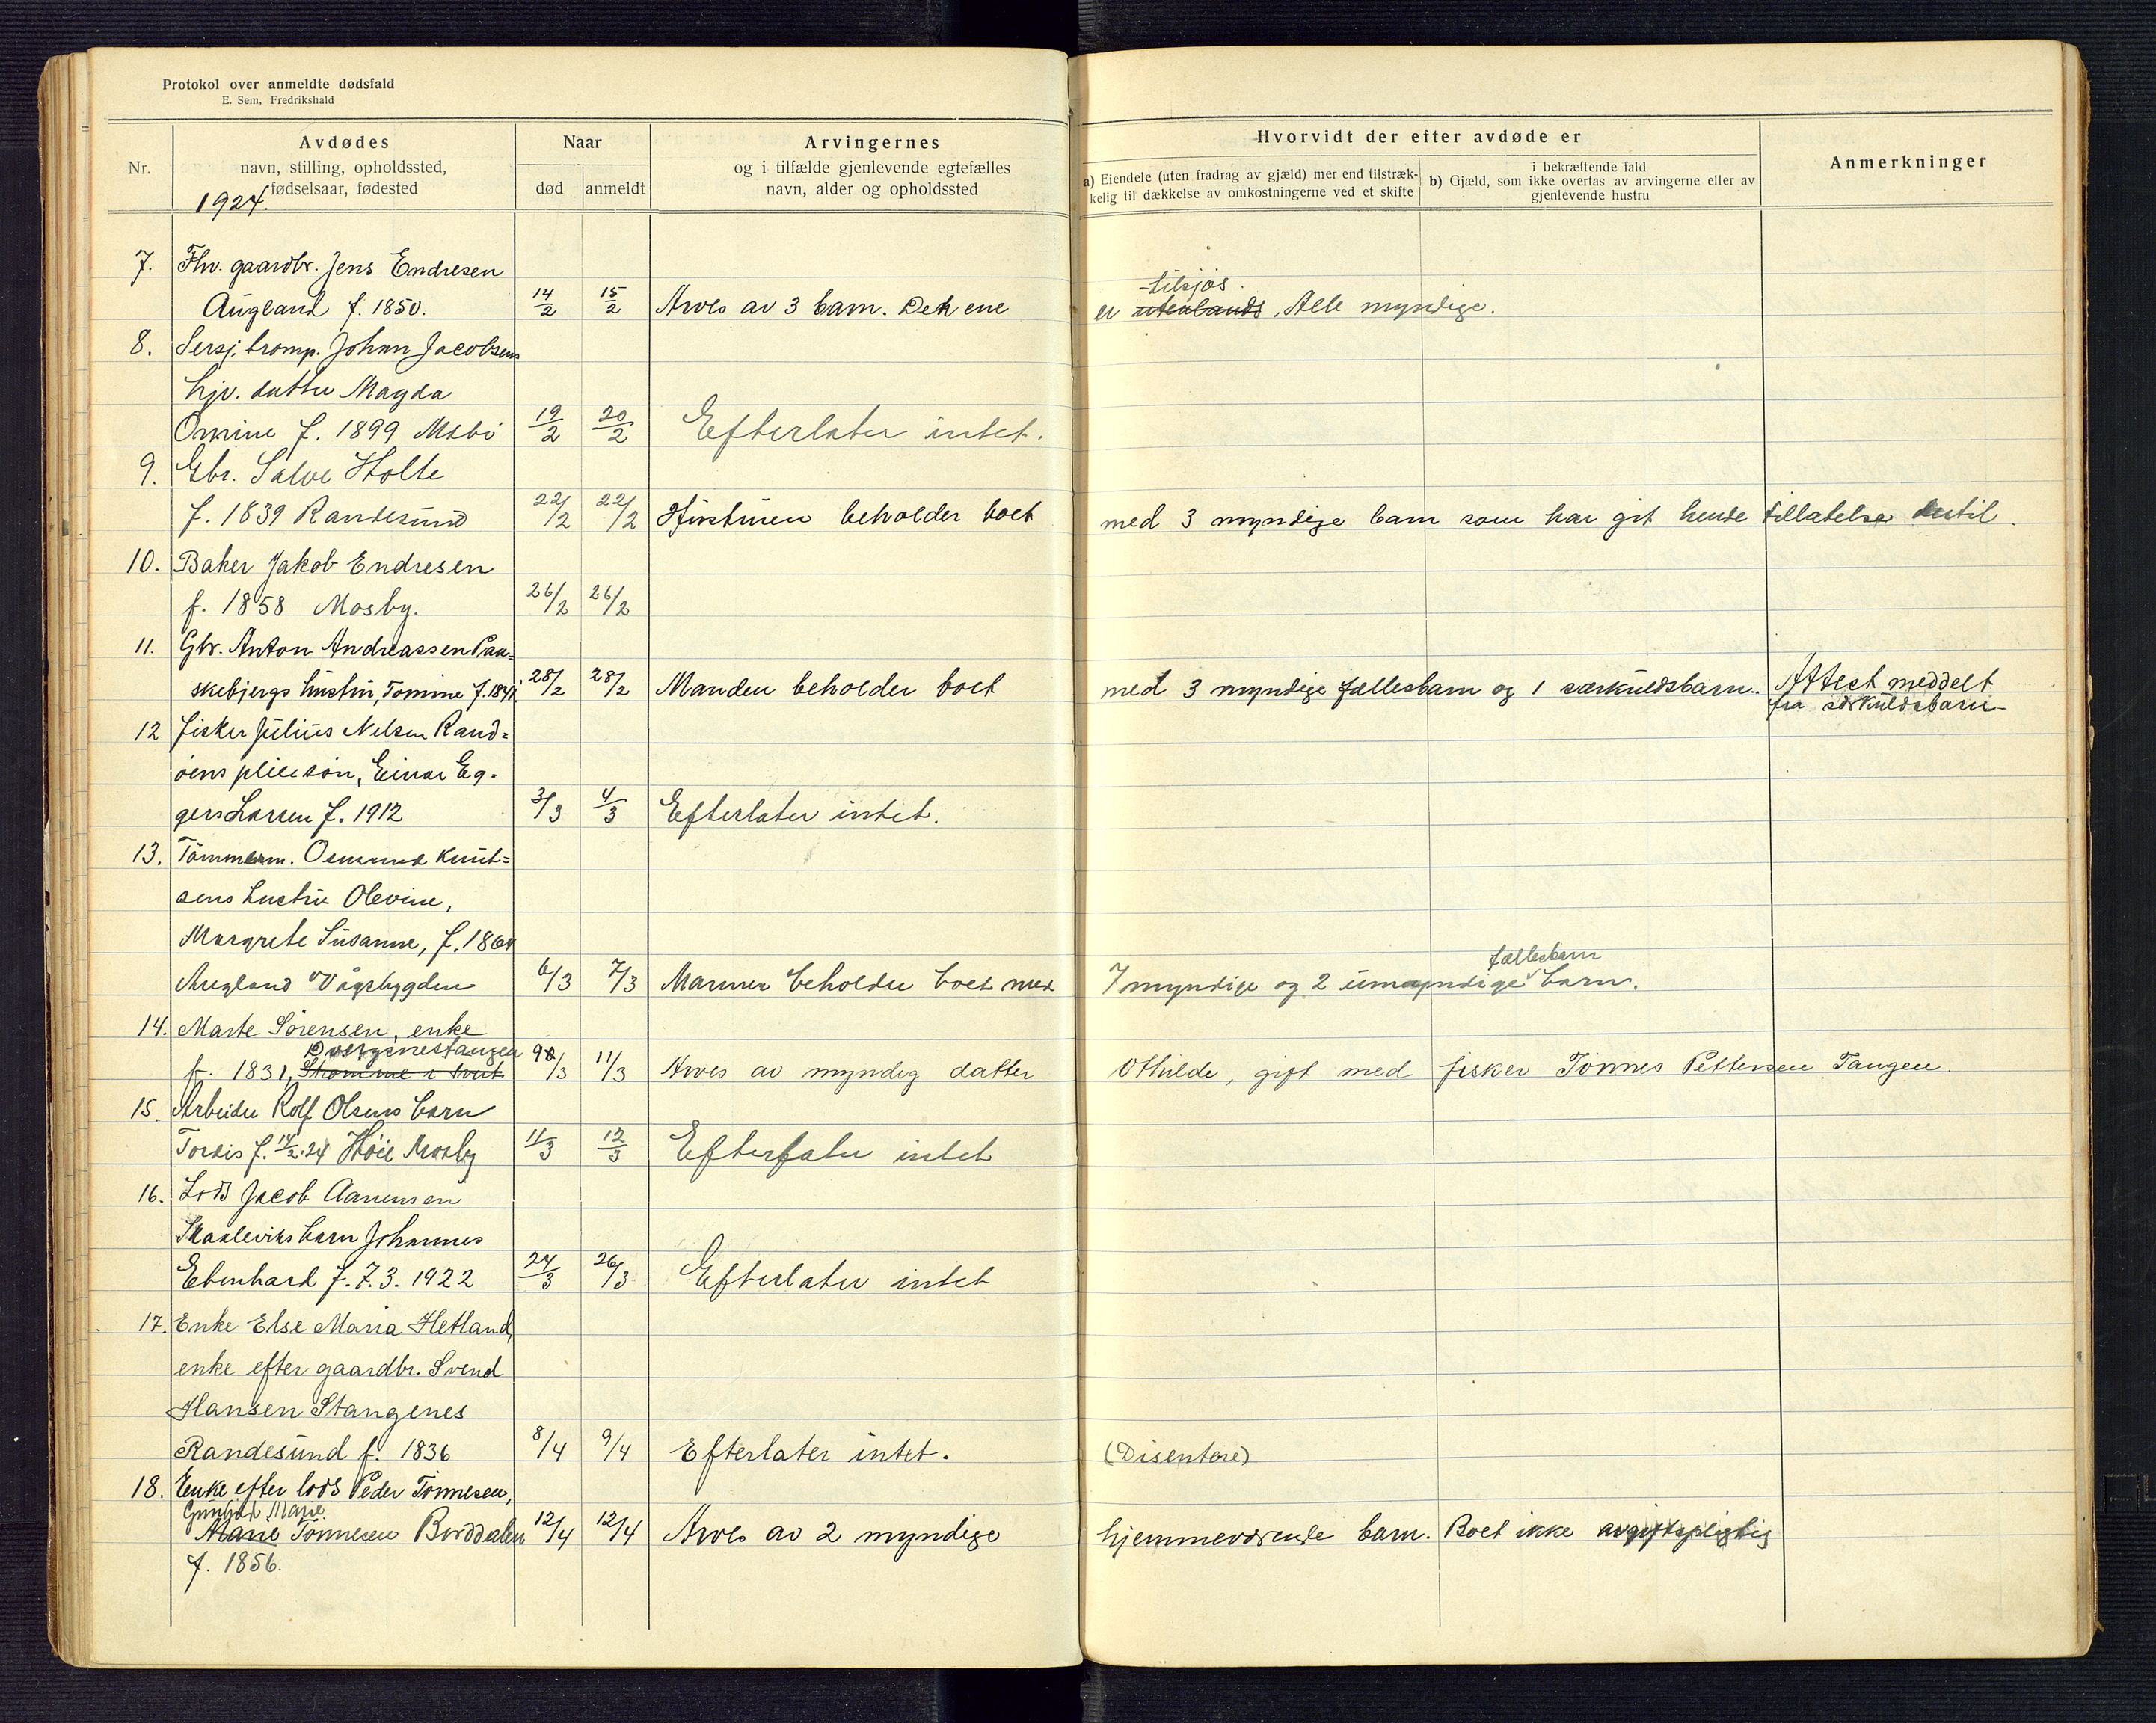 Protokol over anmeldte dødsfald
E. Sem, Fredrikshald
Nr.
Avdødes
navn, stilling, opholdssted,
fødselsaar, fødested
1924.
Naar
død anmeldt
Arvingernes
og i tilfælde gjenlevende egtefælles
navn, alder og opholdssted
Hvorvidt der efter avdøde er
a) Eiendele (uten fradrag av gjæld) mer end tilstræk-
kelig til dækkelse av omkostningerne ved et skifte
i bekræftende fald
b) Gjæld, som ikke overtas av arvingerne eller av
gjenlevende hustru
Anmerkninger
7. Fhv. gaardbr. Jens Endresen
tilsjøs.
Augland f. 1850. 14/2 15/2 Arves av 3 barn. Det ene er utenlands. Alle myndige.
8. Sersj. tromp. Johan Jacobsens
hjv. datter Magda
Omine f. 1899 Mebø 19/2 20/2 Efterlater intet.
9. Gbr. Salve Holte
f. 1839 Randesund 22/2 22/2 Hustruen beholder boet med 3 myndige barn som har git hende tillatelse dertil.
10. Baker Jakob Endresen
f. 1858 Mosby. 26/2 26/2
11. Gbr. Anton Andreassen Paa=
skebjergs hustru, Tomine f. 1841. 28/2 28/2 Manden beholder boet med 3 myndige fællesbarn og 1 særkuldsbarn. Attest meddelt
fra særkuldsbarn
12 Fisker Julius Nelsen Rand=
øens pleiesøn, Einar Eg-
gers Larsen f. 1912 3/3 4/3 Efterlater intet.
13. Tømmerm. Osmund Knut=
sens hustru Olevine,
Margrete Susanne, f. 1864
fællesbarn
Augland Vågsbygden 6/3 7/3 Mannen beholder boet med 7 myndige og 2 umyndige barn.
14. Marte Sørensen, enke
Dvergsnestangen
f. 1831, Strømme i tveit 9/3 11/3 Arves av myndig datter Othilde, gift med fisker Tønnes Pettersen Tangen.
15. Arbeider Rolf Olsens barn
Tordis f. 14/2.24 Høie Mosby 11/3 12/3 Efterlater intet
16. Lods Jacob Aanensen
Skaaleviks barn Johannes
Ebenhard f. 7.3. 1922 24/3 26/3 Efterlater intet
17. Enke Else Maria Hetland,
enke efter gaardbr. Svend
Hansen Stangenes
Randesund f. 1836 8/4 9/4 Efterlater intet. (Disentere)
18. Enke efter lods Peder Tønnesen,
Gunhild Marie
Marie Tønnesen Borddalen 12/4 12/4 Arves av 2 myndige hjemmeværende barn. Boet ikke avgiftspligtig
f. 1856.